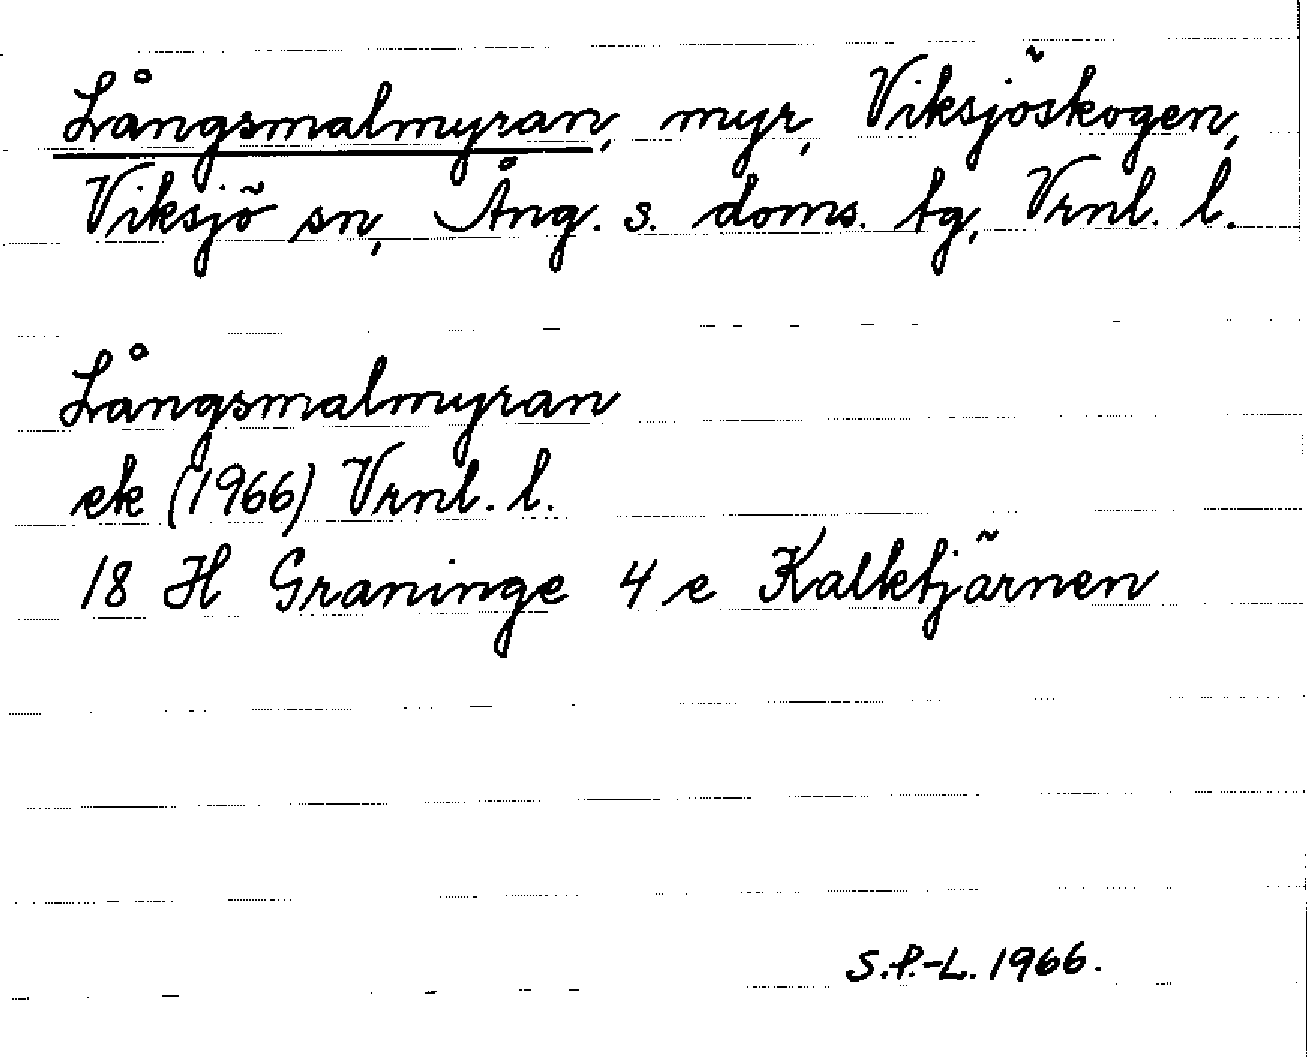 Långsmalmyran, myr, Viksjöskogen,
Viksjö sn, Ång. s. doms. tg, Vrnl. l.
Långsmalmyran
ek (1966) Vrnl. l.
18 H Graninge 4 e Kalktjärnen
S.P.-L. 1966.